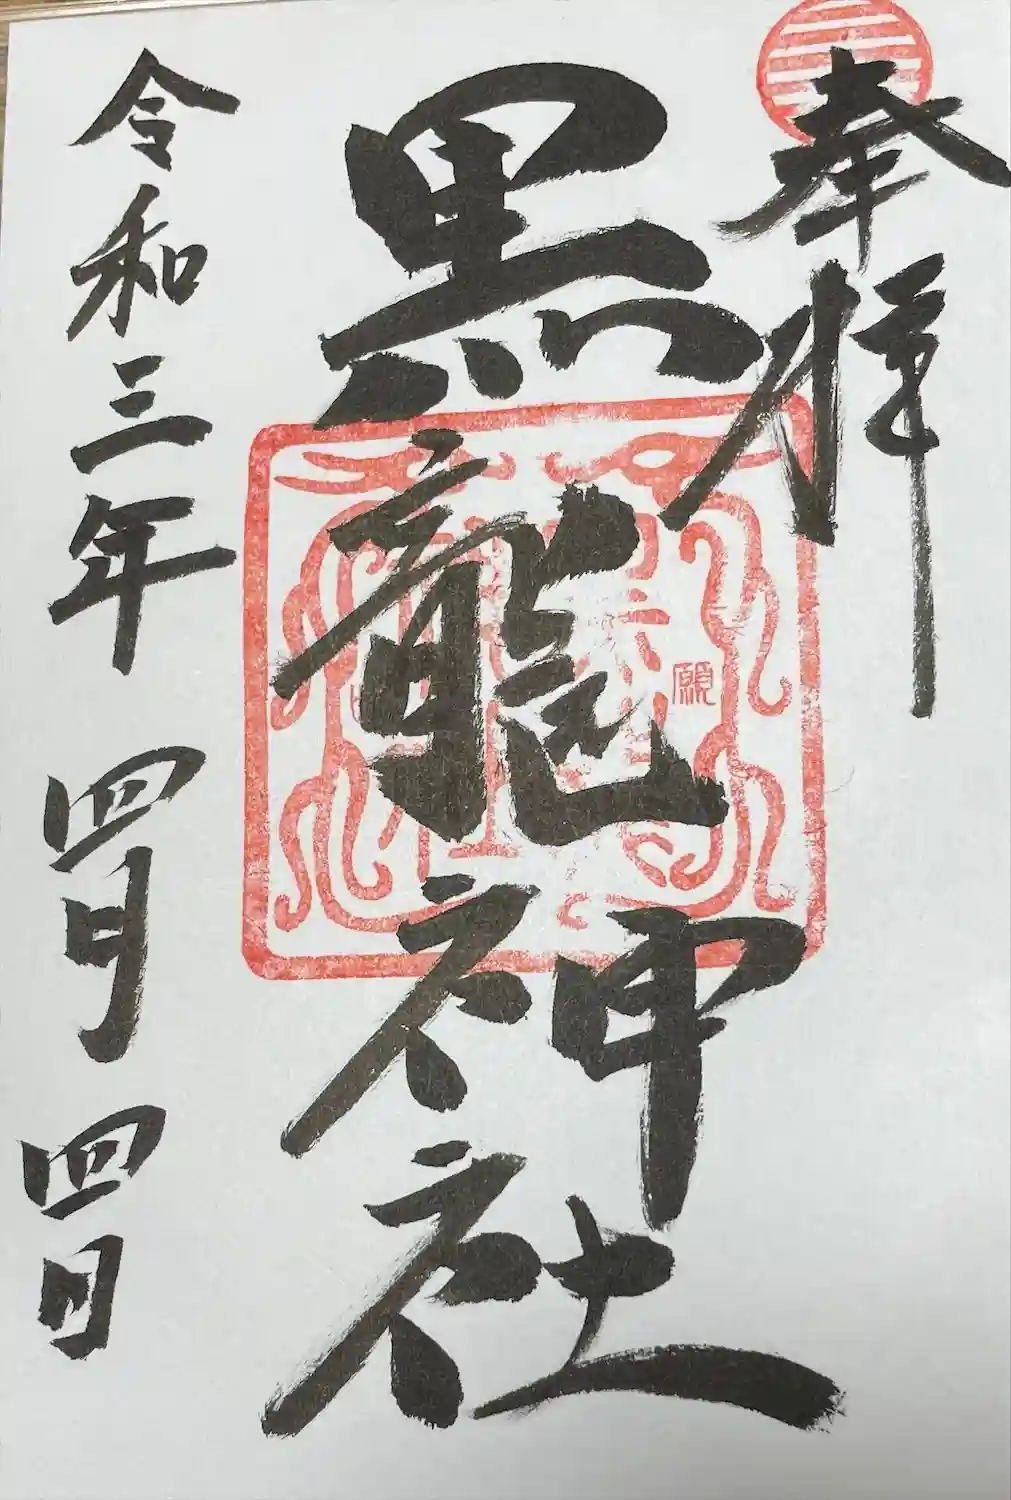 奉拝
黒龍神社
願
令和三年四月四日